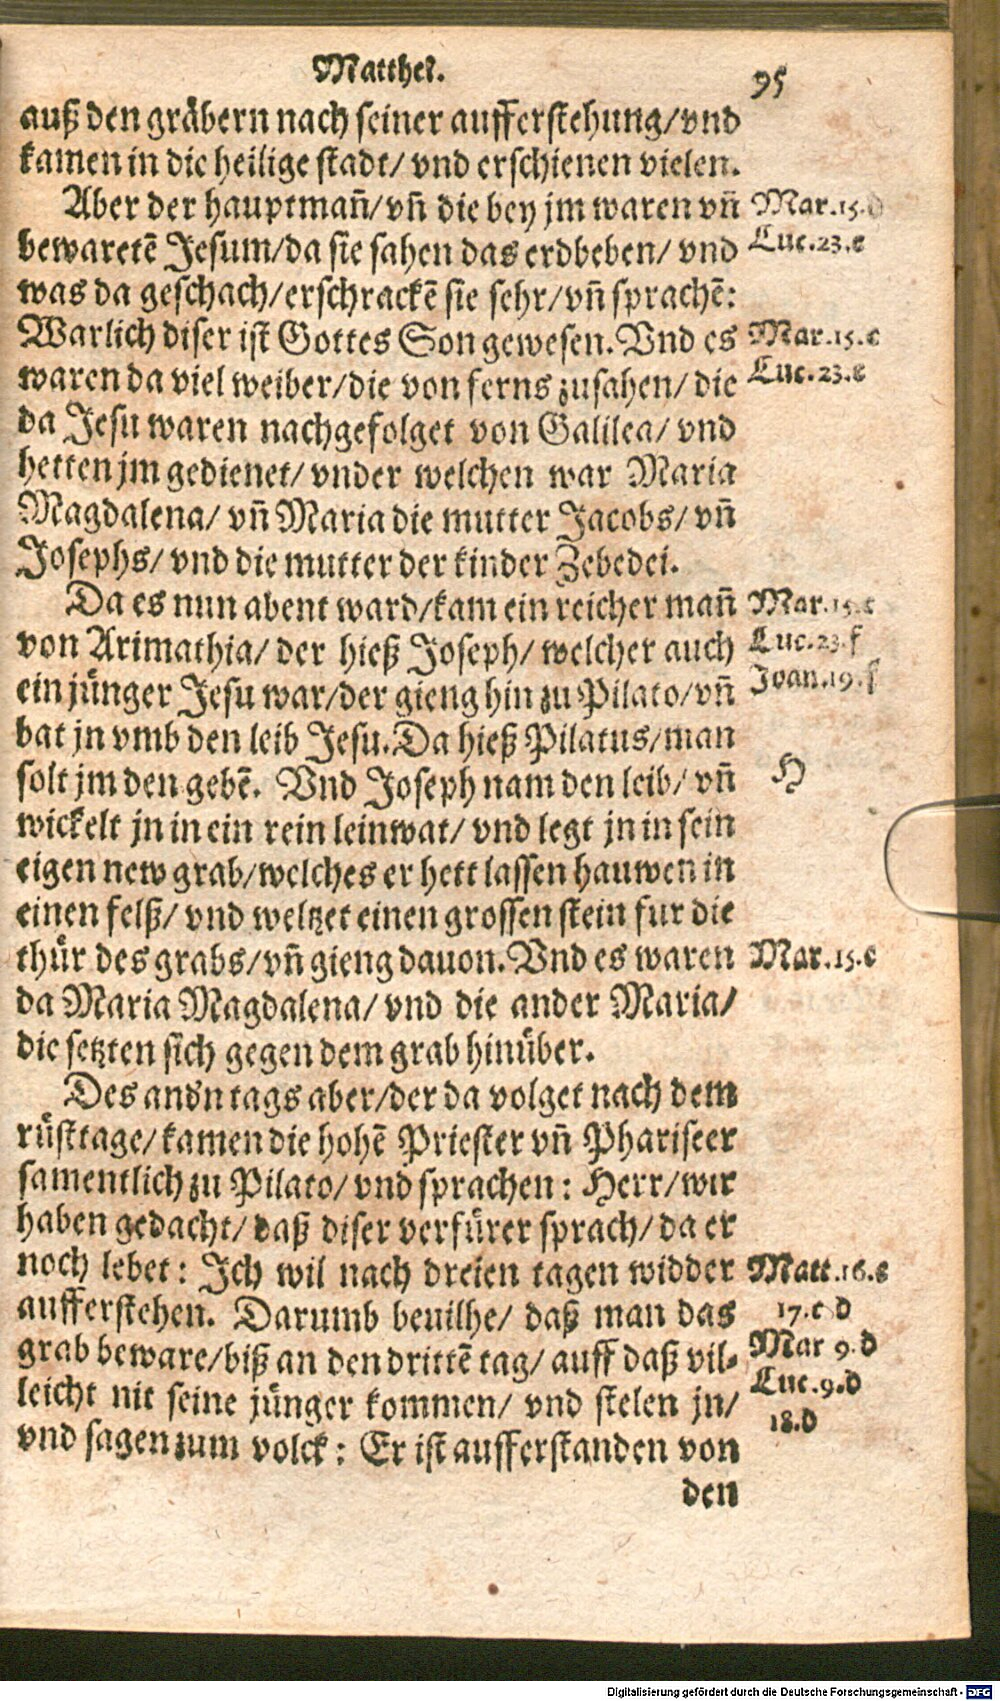 Matthei.
95
auß den gräbern nach seiner aufferstehung/vnd
kamen in die heilige stadt/ vnd erschienen vielen.
Aber der hauptman̄/vn̄ die bey jm waren vn̄
bewaretē Jesum/da sie sahen das erdbeben/ vnd
was da geschach/erschrackē sie sehr/vn̄ sprachē:
Warlich diser ist Gottes Son gewesen. Vnd es
waren da viel weiber/die von ferns zusahen/ die
da Jesu waren nachgefolget von Galilea/ vnd
hetten jm gedienet/ vnder welchen war Maria
Magdalena/ vn̄ Maria die mutter Jacobs/ vn̄
Josephs/ vnd die mutter der kinder Zebedei.
Da es nun abent ward/kam ein reicher man̄
von Arimathia/ der hieß Joseph/ welcher auch
ein jünger Jesu war/der gieng hin zu Pilato/vn̄
bat jn vmb den leib Jesu. Da hieß Pilatus/man
solt jm den gebē. Vnd Joseph nam den leib/ vn̄
wickelt jn in ein rein leinwat/ vnd legt jn in sein
eigen new grab/welches er hett lassen hauwen in
einen felß/ vnd weltzet einen grossen stein fur die
thür des grabs/vn̄ gieng dauon. Vnd es waren
da Maria Magdalena/ vnd die ander Maria/
die setzten sich gegen dem grab hinüber.
Des andn tags aber/der da volget nach dem
rüsttage/kamen die hohē Priester vn̄ Phariseer
samentlich zu Pilato/ vnd sprachen: Herr/wir
haben gedacht/ daß diser verfürer sprach/ da er
noch lebet: Ich wil nach dreien tagen widder
aufferstehen. Darumb beuilhe/ daß man das
grab beware/biß an den drittē tag/ auff daß vil-
leicht nit seine jünger kommen/ vnd stelen jn/
vnd sagen zum volck: Er ist aufferstanden von
den
Mar.15.d
Luc.23.e
Mar.15.e
Luc.23.e
Mar.15.e
Luc.23.f
Joan.19.f
H
Mar.15.e
Matt.16.e
17.c d
Mar 9.d
Luc.9.d
18.d
Digitalisierung gefördert durch die Deutsche Forschungsgemeinschaft - DFG